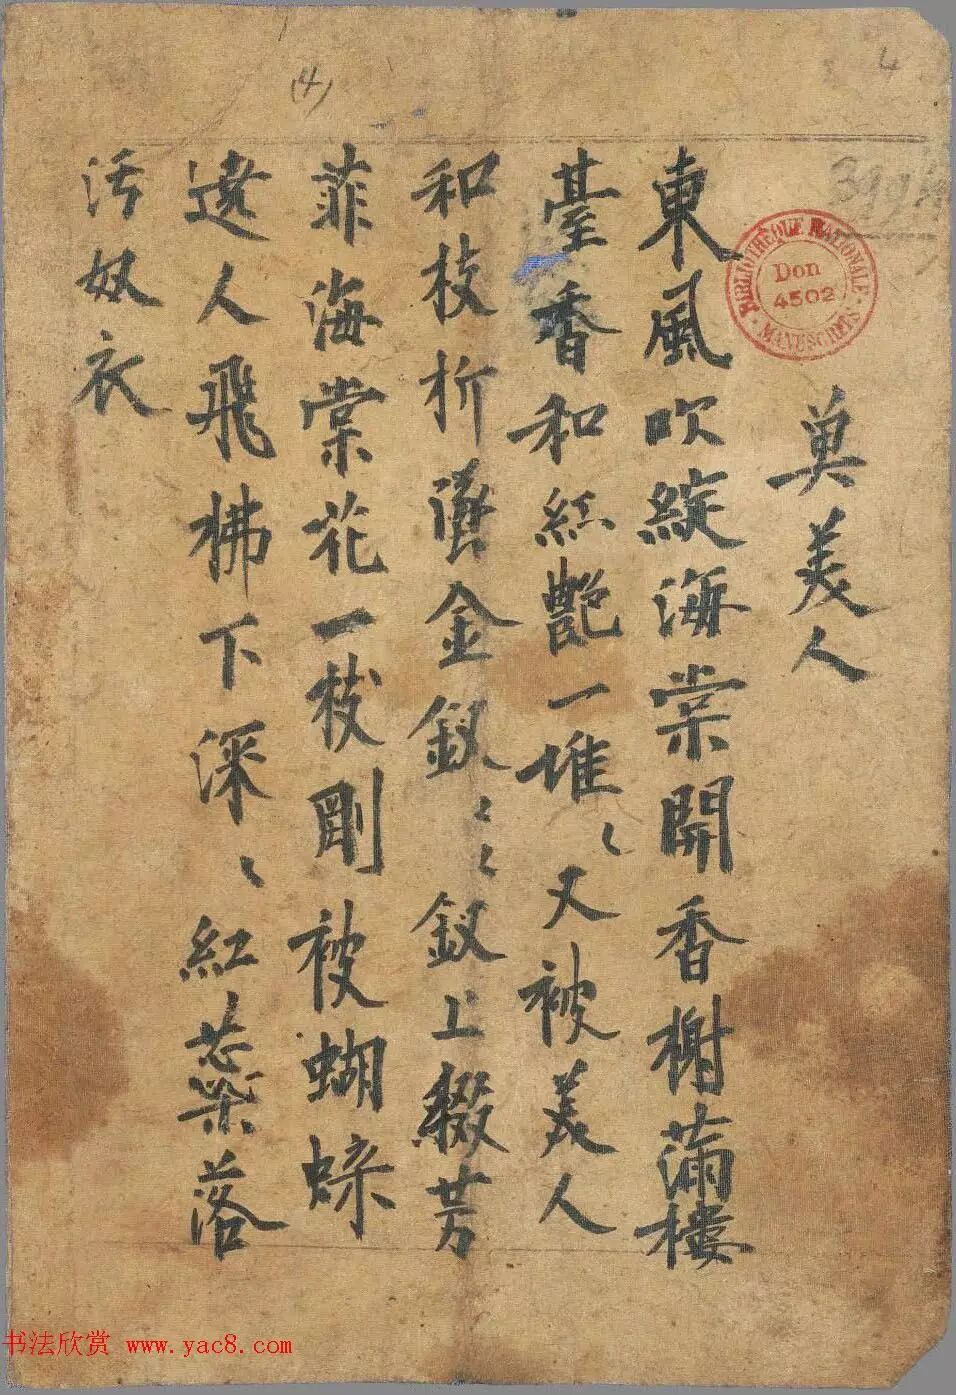 (4)
4
3994
BIBLIOTHÈQUE NATIONALE
Don
4502
MANUSCRITS
虞美人
東風吹綻海棠開香榭滿樓
臺香和紅艷一堆〻又被美人
和枝折墜金釵〻〻釵上綴芳
菲海棠花一枝剛被蝴蝶
遶人飛拂下深〻紅蘂落
污奴衣
书法欣赏 www.yac8.com